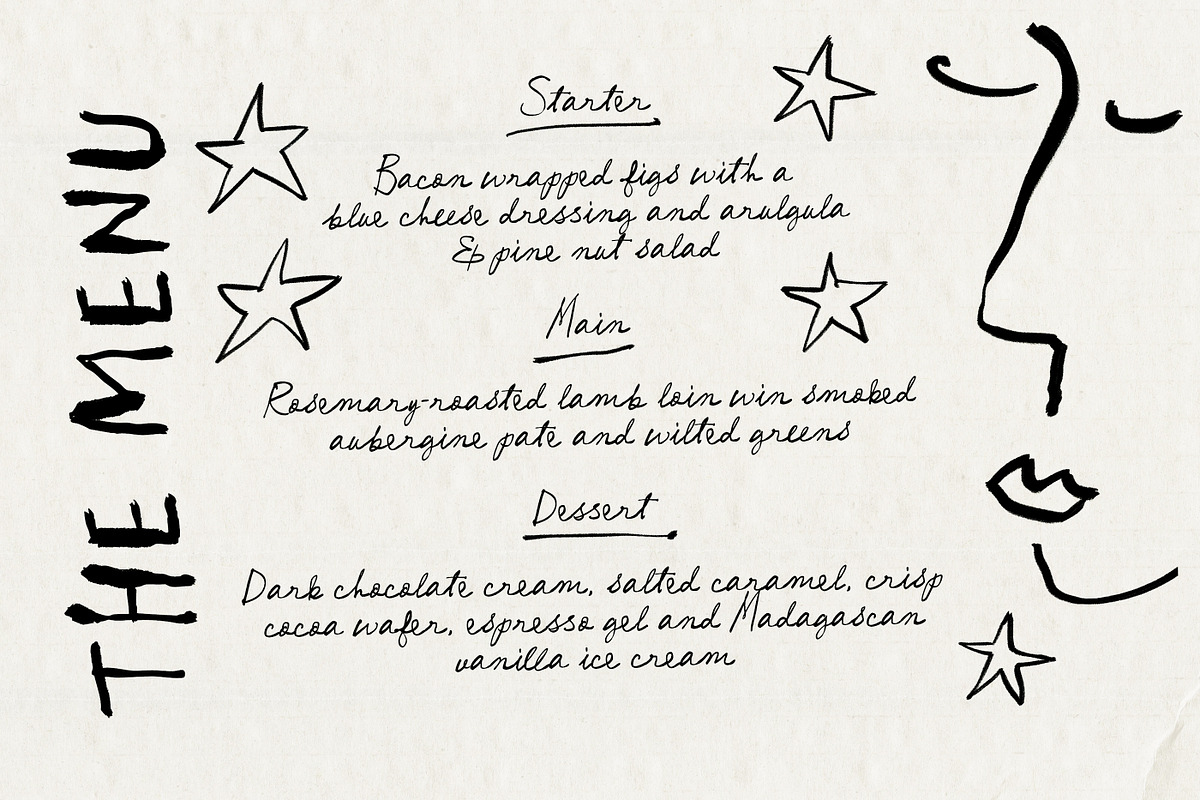 THE MENU
Starter
Bacon wrapped figs with a
blue cheese dressing and arulgula
& pine nut salad
Main
Rosemary-roasted lamb loin win smoked
aubergine pate and wilted greens
Dessert
Dark chocolate cream, salted caramel, crisp
cocoa wafer, espresso gel and Madagascan
vanilla ice cream